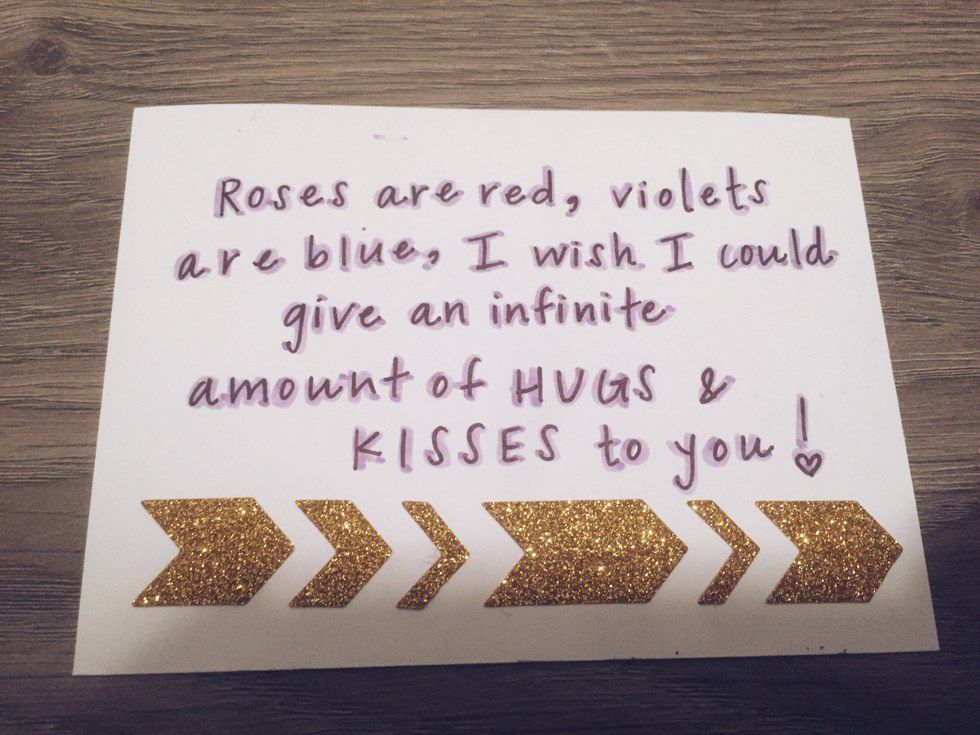 Roses are red, violets
are blue, I wish I could
give an infinite
amount of HUGS &
KISSES to you!